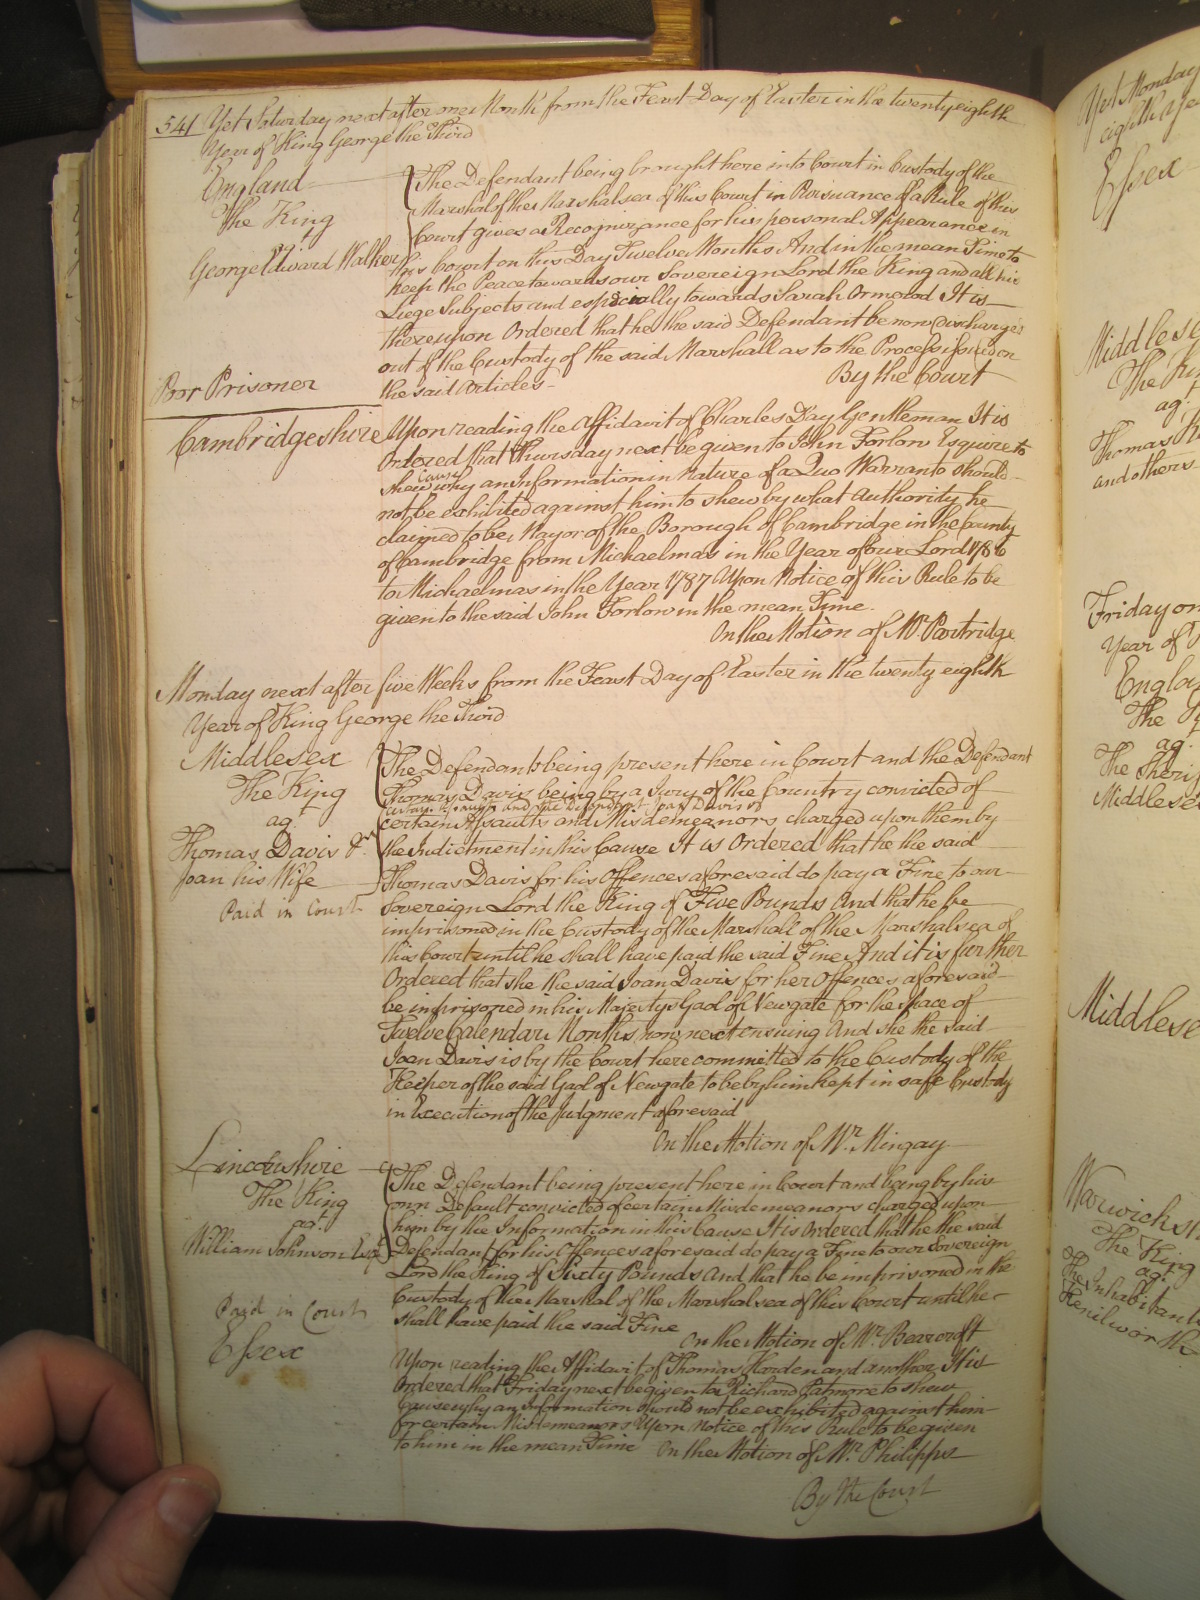 541 Yet Saturday next after one Month from the Feast Day of Easter in the twenty eighth
Year of King George the Third
England
The King
agt
George Edward Walker
The Defendant being brought here into Court in Custody of the
Marshal of the Marshalsea of this Court in Pursuance of a Rule of this
Court gives a Recognizance for his personal Appearance in
this Court on this Day Twelve Months And in the mean Time to
keep the Peace towards our Sovereign Lord the King and all his
Liege Subjects and especially towards Sarah Ormerod It is
thereupon Ordered that he the said Defendant be now discharged
out of the Custody of the said Marshall as to the Process issued on
the said Articles
By the Court
Poor Prisoner
Cambridgeshire
Upon reading the Affidavit of Charles Day Gentleman It is
Ordered that Thursday next be given to John Forlow Esquire to
shew Cause why an Information in Nature of a Quo Warranto should
not be exhibited against him to shew by what Authority he
claimed to be Mayor of the Borough of Cambridge in the County
of Cambridge from Michaelmas in the Year of our Lord 1786
to Michaelmas in the Year 1787 Upon Notice of this Rule to be
given to the said John Forlow in the mean Time.
On the Motion of Mr. Partridge
Monday next after five Weeks from the Feast Day of Easter in the twenty eighth
Year of King George the Third
Middlesex
The King
agt
Thomas Davis &
Joan his Wife
Paid in Court
The Defendants being present here in Court and the Defendant
Thomas Davis being by a Jury of the Country convicted of
and the Defendant Joan Davis of
certain Assaults and Misdemeanors charged upon them by
the Indictment in this Cause It is Ordered that he the said
Thomas Davis for his Offences aforesaid do pay a Fine to our
Sovereign Lord the King of Five Pounds And that he be
imprisoned in the Custody of the Marshall of the Marshalsea of
this Court until he shall have paid the said Fine And it is further
Ordered that she the said Joan Davis for her Offences aforesaid
be imprisoned in his Majestys Gaol of Newgate for the space of
Twelve Calendar Months now next ensuing And she the said
Joan Davis is by the Court here committed to the Custody of the
Keeper of the said Gaol of Newgate to be by him kept in safe Custody
in Execution of the Judgment aforesaid
On the Motion of Mr. Mingay
Lincolnshire
The King
agt
William Johnson Esqr
Paid in Court
The Defendant being present here in Court and being by his
own Default convicted of certain Misdemeanors charged upon
him by the Information in this Cause It is Ordered that he the said
Defendant for his Offences aforesaid do pay a Fine to our Sovereign
Lord the King of Sixty Pounds And that he be imprisoned in the
Custody of the Marshal of the Marshalsea of this Court until he
shall have paid the said Fine
On the Motion of Mr. Bearcroft
Essex
Upon reading the Affidavit of Thomas Harden and another It is
Ordered that Friday next be given to Richard Patmore to shew
Cause why an Information should not be exhibited against him
for certain Misdemeanors Upon Notice of this Rule to be given
to him in the mean Time On the Motion of Mr. Philipps
By the Court
Yet Monday
Essex
The
agt
Thomas
and others
Friday on
Year of
The
agt
The Sheri
The King
agt
The Inhabitants
Kenilworth